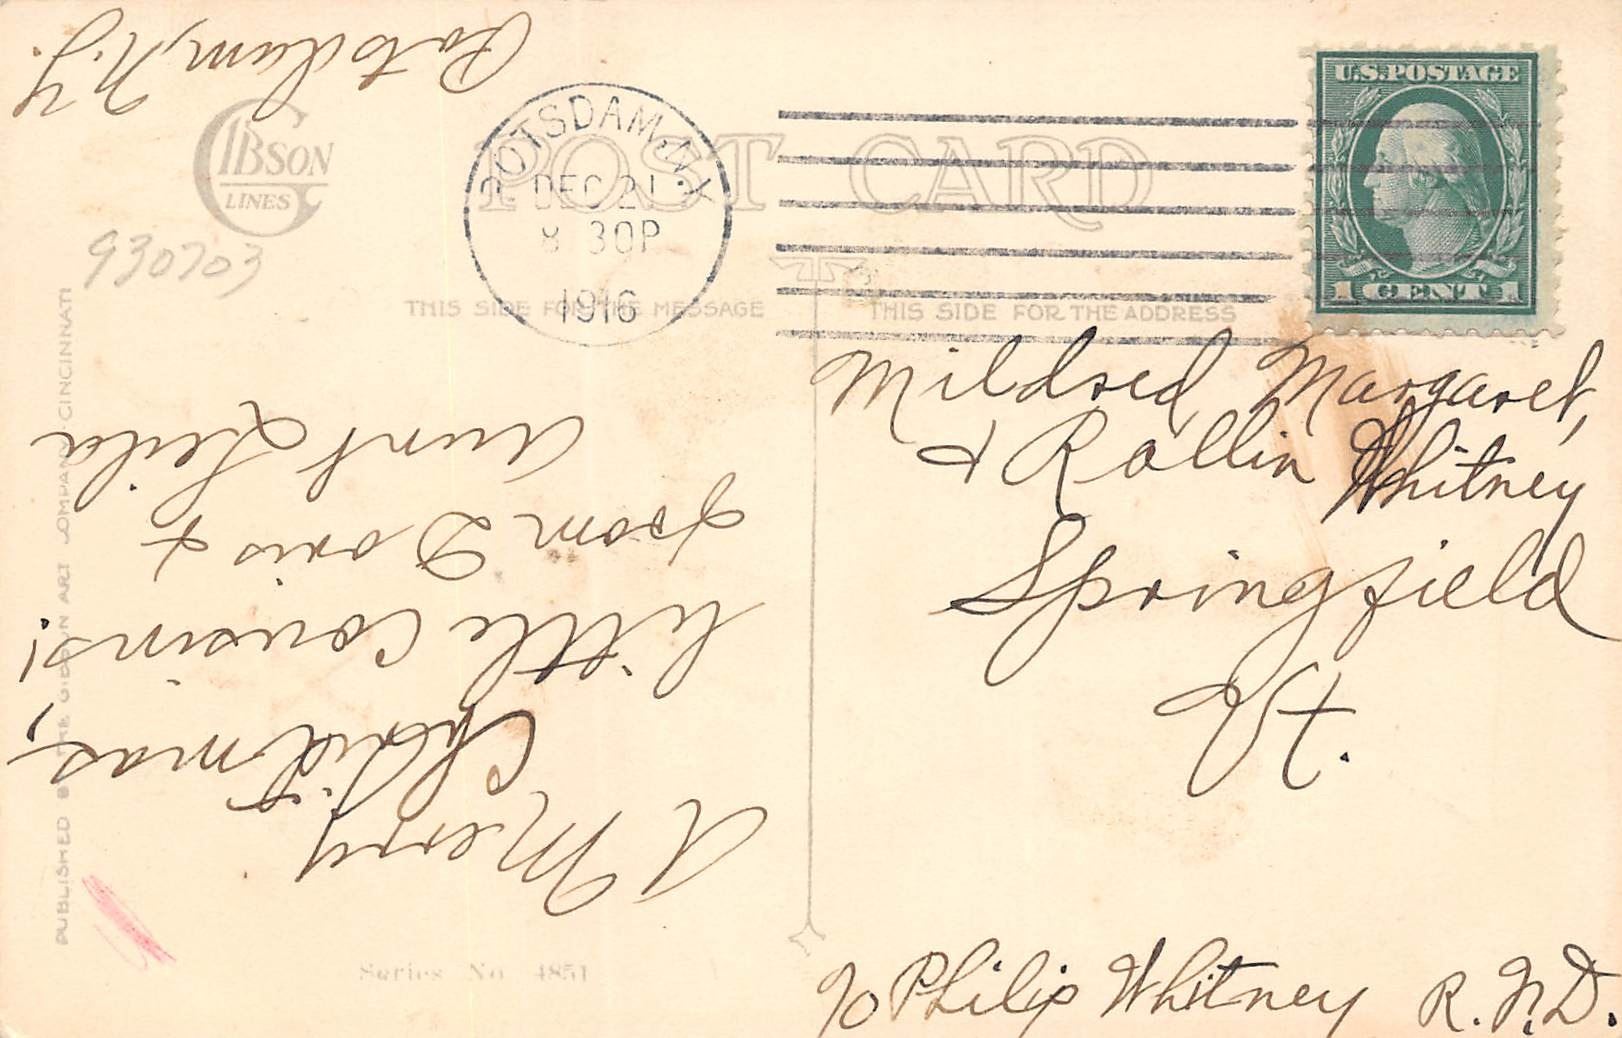 GIBSON
LINES
930703
POST CARD
POTSDAM, N.Y.
DEC 21
8 30P
1916
U.S. POSTAGE
1 CENT 1
THIS SIDE FOR THE MESSAGE
THIS SIDE FOR THE ADDRESS
Mildred Margaret,
& Rollin Whitney
Springfield
Vt.
c/o Philip Whitney R.F.D.
A Merry
Christmas,
little cousins!
from Doris &
Aunt Leila
Potsdam, N.Y.
PUBLISHED BY THE GIBSON ART COMPANY, CINCINNATI
Series No 4851